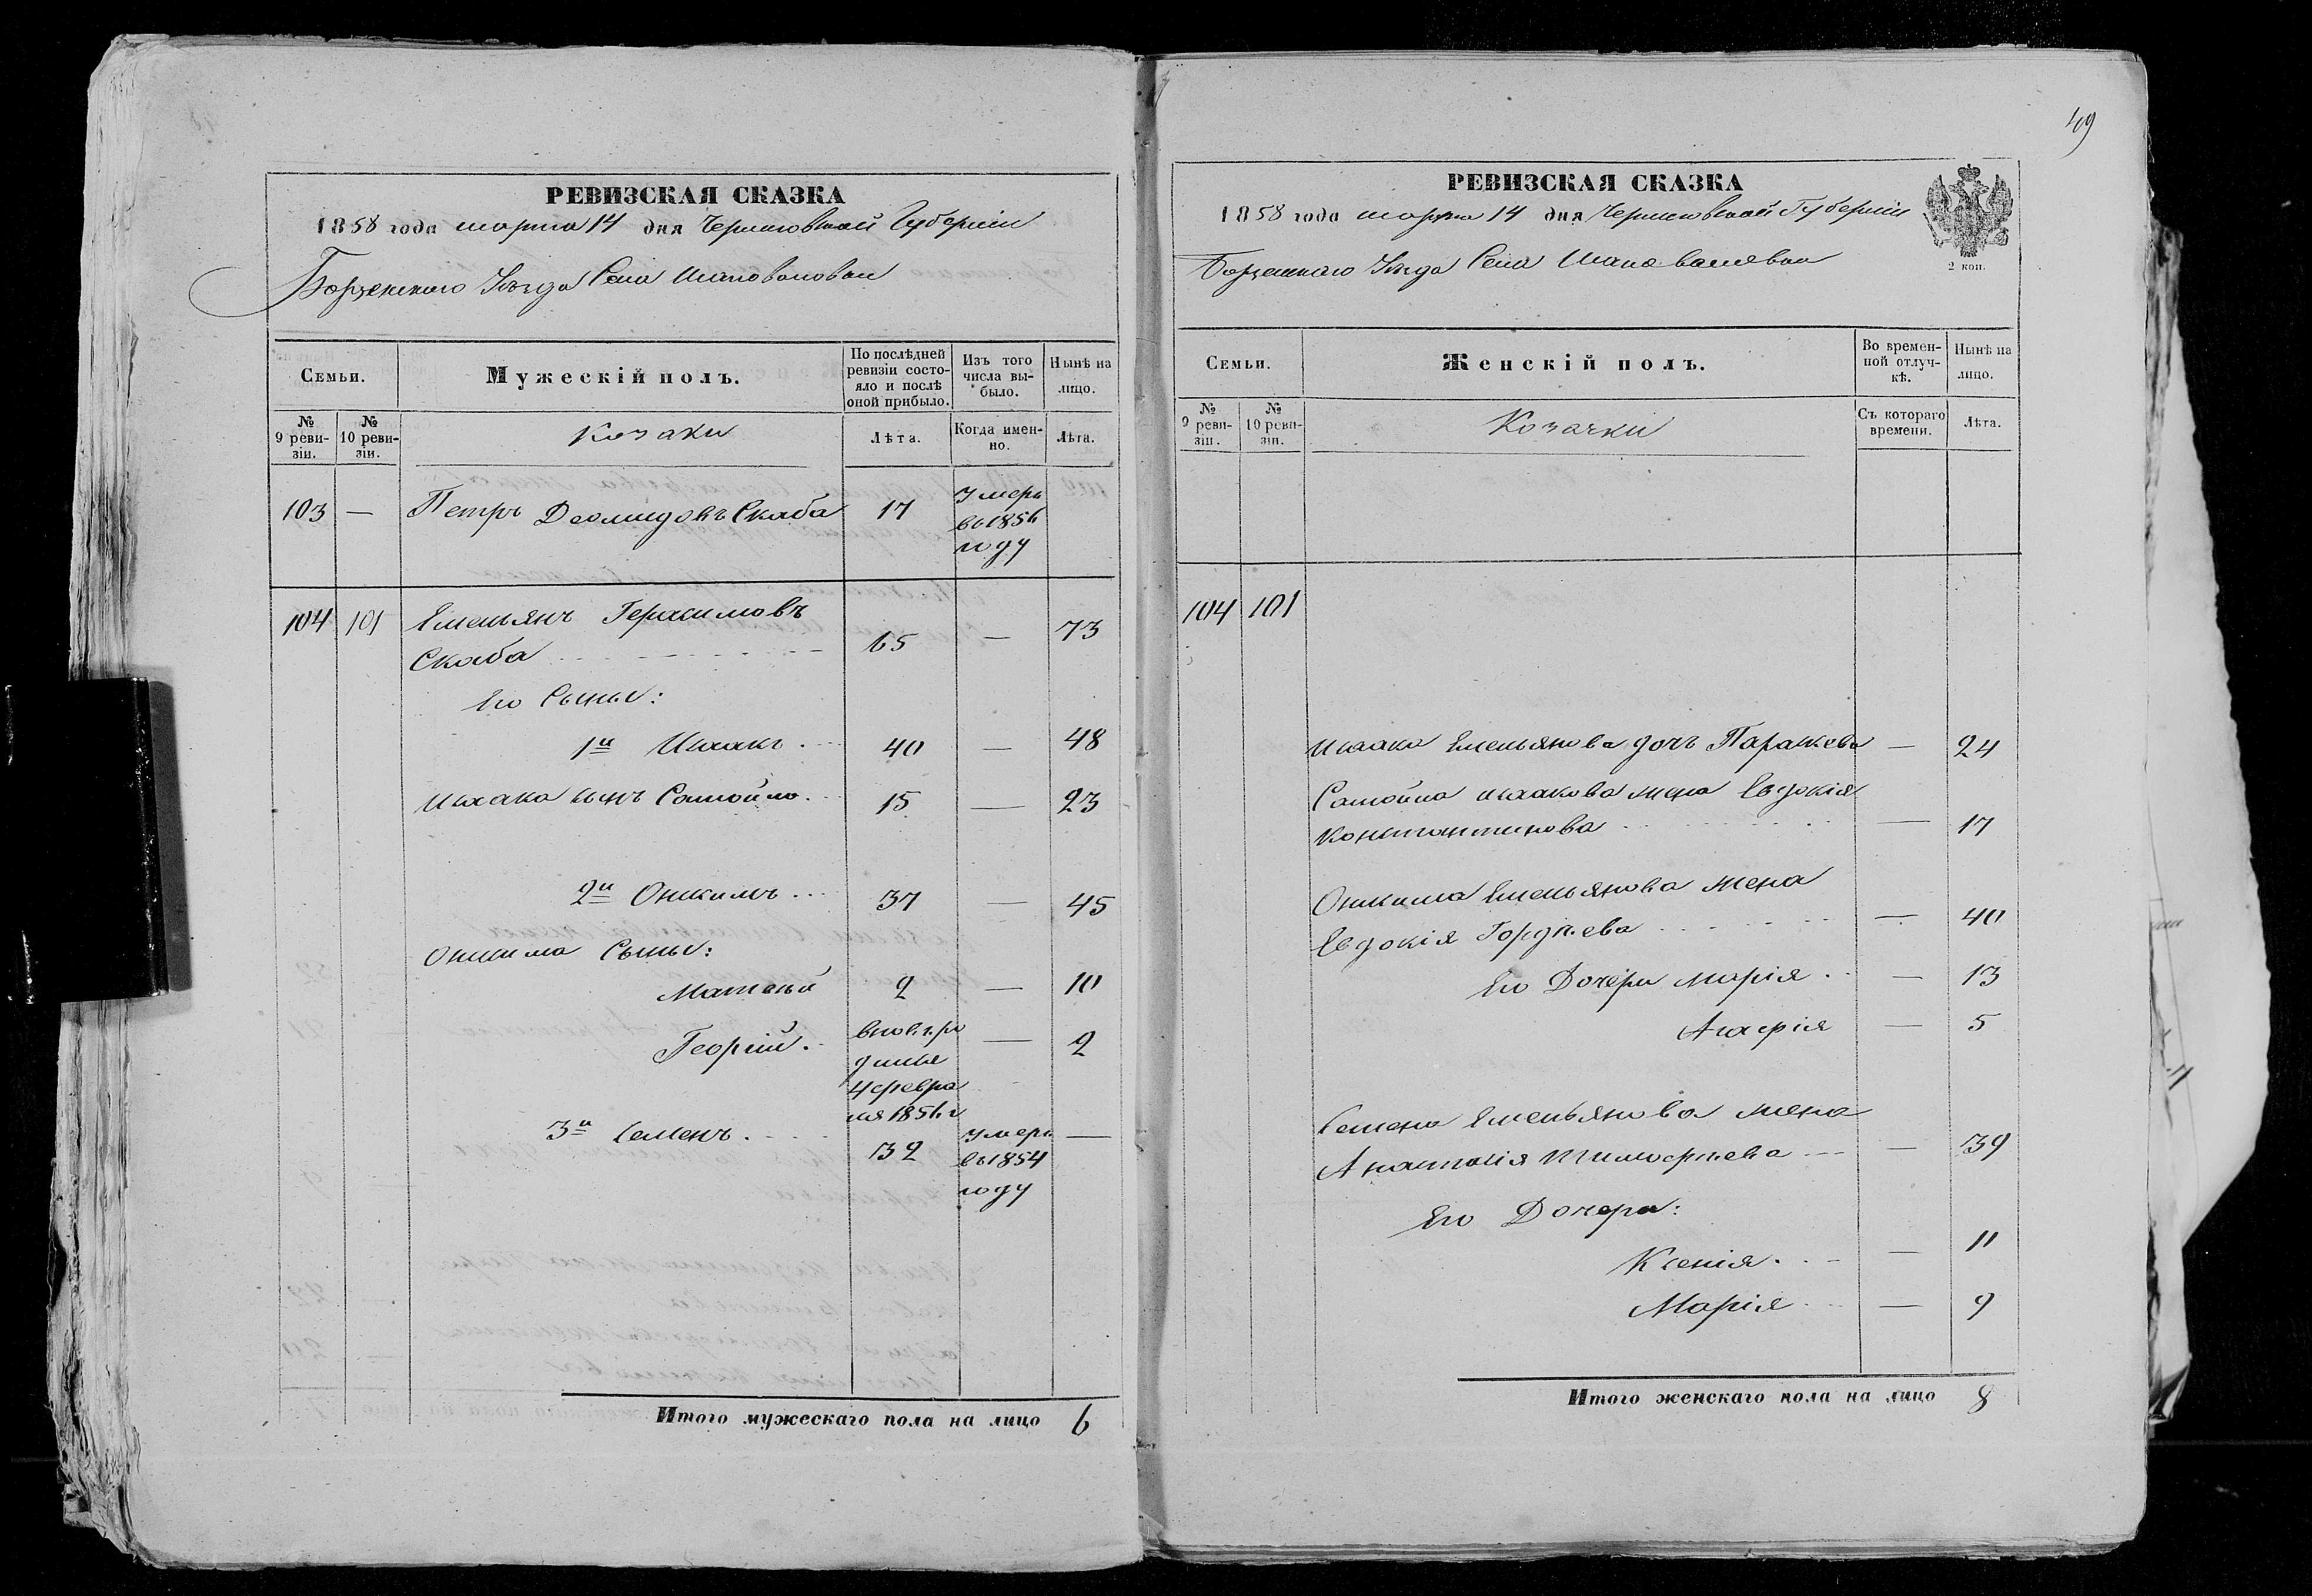 РЕВИЗСКАЯ СКАЗКА
1858 года марта 14 дня Черниговской Губернии
Борзенского Уѣзда Села Шаповаловки
Семьи.
Мужескій полъ.
По послѣдней ревизіи состояло и послѣ оной прибыло.
Изъ того числа выбыло.
Нынѣ на лицо.
№ 9 ревизіи.
№ 10 ревизіи.
Козаки
Лѣта.
Когда именно.
Лѣта.
103 — Петръ Деомидовъ Скаба 17 Умеръ
въ 1856
году
104 101 Емельянъ Герасимовъ
Скаба 65 — 73
Его Сыны:
1й Исаакъ 40 — 48
Исаака сынъ Самойло 15 — 23
2й Онисимъ 37 — 45
Онисима Сыны:
Матвѣй 2 — 10
Георгій вновь ро — 2
дился
4 февра
ля 1856 г
3й Семенъ 32 Умеръ —
въ 1854
году
Итого мужескаго пола на лицо 6
49
РЕВИЗСКАЯ СКАЗКА
1858 года марта 14 дня Черниговской Губернии
Борзенского Уѣзда Села Шаповаловки
2 коп.
Семьи.
Женскій полъ.
Во временной отлучкѣ.
Нынѣ на лицо.
№ 9 ревизіи.
№ 10 ревизіи.
Козачки
Съ котораго времени.
Лѣта.
104 101
Исаака Емельянова дочь Параскева — 24
Самойла Исаакова жена Евдокія
Константинова — 17
Онисима Емельянова жена
Евдокія Гордѣева — 40
Его Дочери Марія — 13
Агафія — 5
Семена Емельянова жена
Анастасія Тимофѣева — 39
Его Дочери:
Ксенія — 11
Марія — 9
Итого женскаго пола на лицо 8